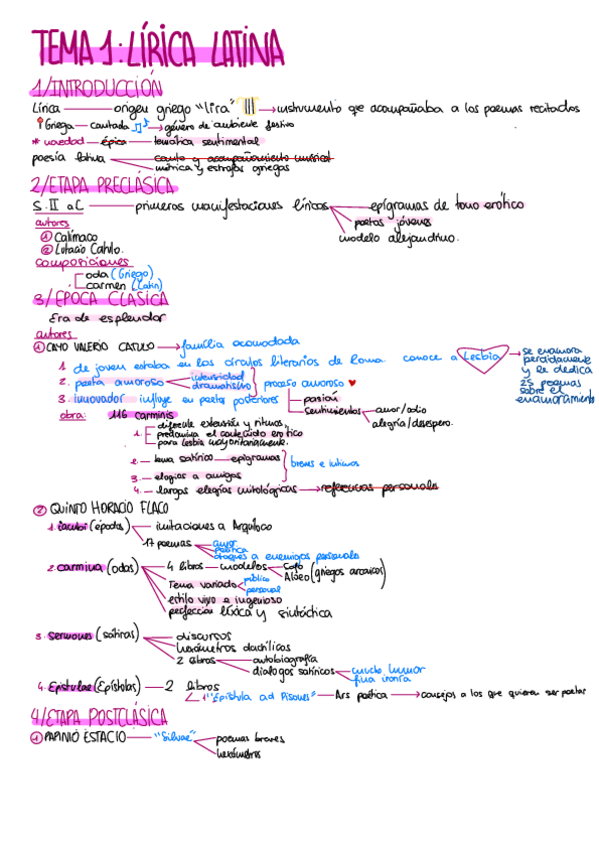 TEMA 1: LÍRICA LATINA
1/INTRODUCCIÓN
Lírica — origen griego "lira" → instrumento que acompañaba a los poemas recitados
Griega — cantada → género de ambiente festivo
* novedad — épica — temática sentimental
poesía latina — canto y acompañamiento musical
métrica y estrofas griegas
2/ETAPA PRECLÁSICA
S. II a.C — primeras manifestaciones líricas — epigramas de tono erótico
poetas jóvenes
modelo alejandrino.
autores
① Calímaco
② Lutacio Catulo.
composiciones
oda (Griego)
carmen (Latín)
3/ÉPOCA CLÁSICA
Era de esplendor
autores
① CAYO VALERIO CATULO → familia acomodada
1. de joven estaba en los círculos literarios de Roma. conoce a Lesbia → se enamora perdidamente y le dedica 25 poemas sobre el enamoramiento
2. poeta amoroso — intensidad dramatismo } proceso amoroso ♥
3. innovador influye en poetas posteriores — pasión
sentimientos — amor/odio
alegría/desespero.
obra: 116 carminis
1. — diferente extensión y ritmos,
predomina el contenido erótico
para Lesbia mayoritariamente.
2. — tema satírico — epigramas } breves e íntimos
3. — elogios a amigos
4. — largas elegías mitológicas → referencias personales
② QUINTO HORACIO FLACO
1. iambi (épodos) — imitaciones a Arquíloco
17 poemas — amor
política
ataques a enemigos personales
2. carmina (odas) — 4 libros — modelos — Safo
Alceo (griegos arcaicos)
Tema variado — público
personal
estilo vivo e ingenioso
perfección léxica y sintáctica
3. sermones (sátiras) — discursos
hexámetros dactílicos
2 libros — autobiografía
diálogos satíricos — mucho humor
fina ironía
4. Epistulae (Epístolas) — 2 libros
1 "Epístula ad Pisones" — Ars poética → consejos a los que quieran ser poetas
4/ETAPA POSTCLÁSICA
① PAPINIO ESTACIO — "Silvae" — poemas breves
hexámetros